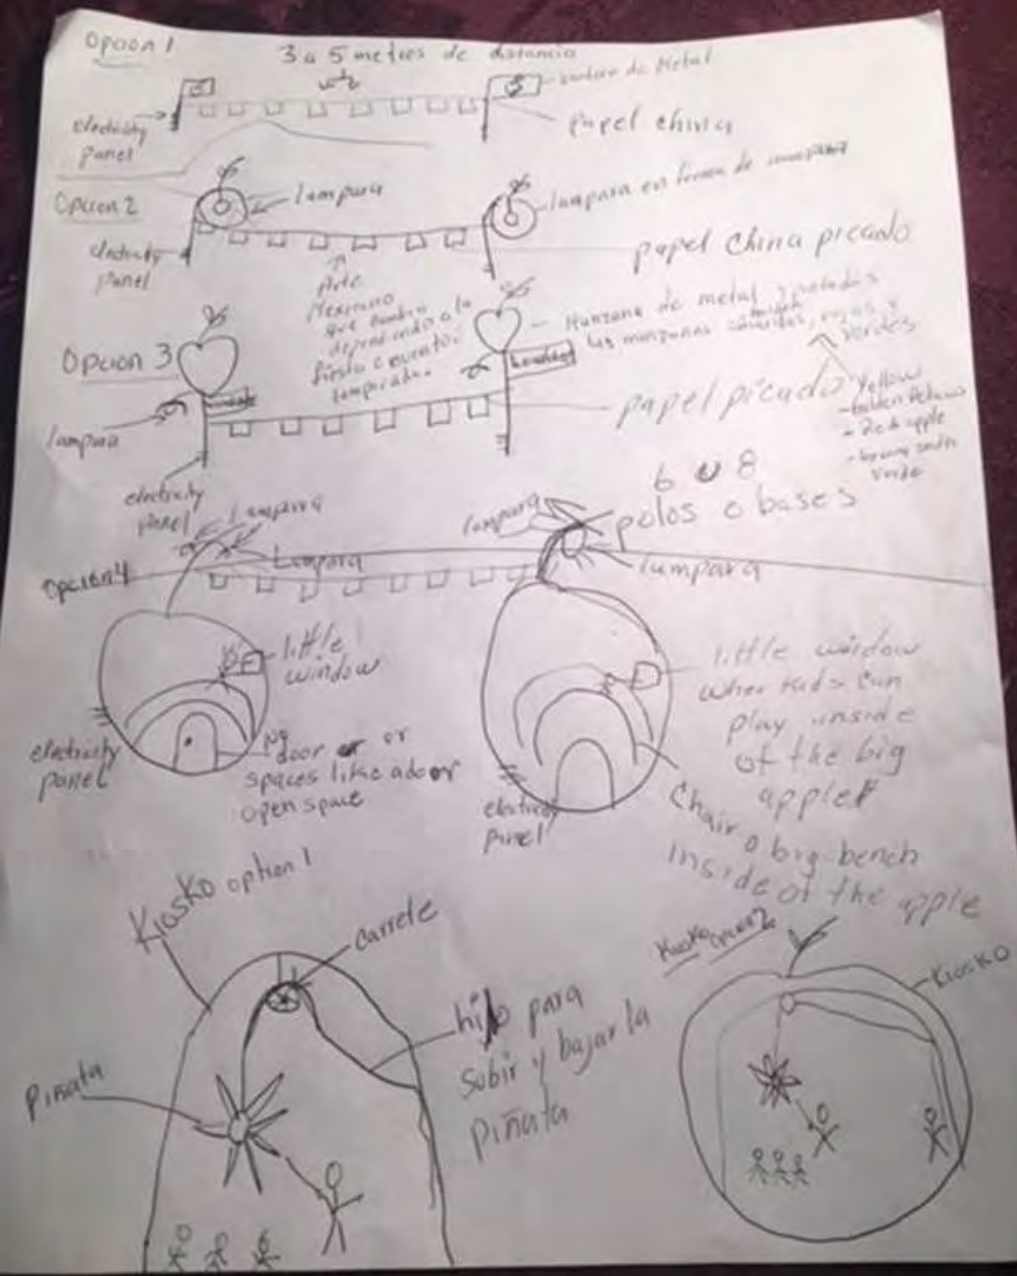 Opcion 1
3 a 5 metros de distancia
de Metal
electricity
Panel
papel china
Opcion 2
lampara
lampara en forma de manzana
electricity
Panel
papel China picado
Arte
Mexicano
que cambia
dependiendo a la
fiesta o evento.
temporada.
Opcion 3
Manzana de metal pintadas
las manzanas rojas y
verdes
Yellow
- Golden Delicious
- Red apple
verde
papel picado
lampara
electricity
panel
6 u 8
polos o bases
Opcion 4
Lampara
Lampara
lampara
lampara
little
window
electricity
panel
door or or
spaces like a door
open space
little window
wher kids can
play inside
of the big
apple
electricity
panel
Chair o big bench
inside of the apple
Kiosko option 1
Carrete
hilo para
subir y bajar la
piñata
Piñata
Kiosko opcion 2
Kiosko